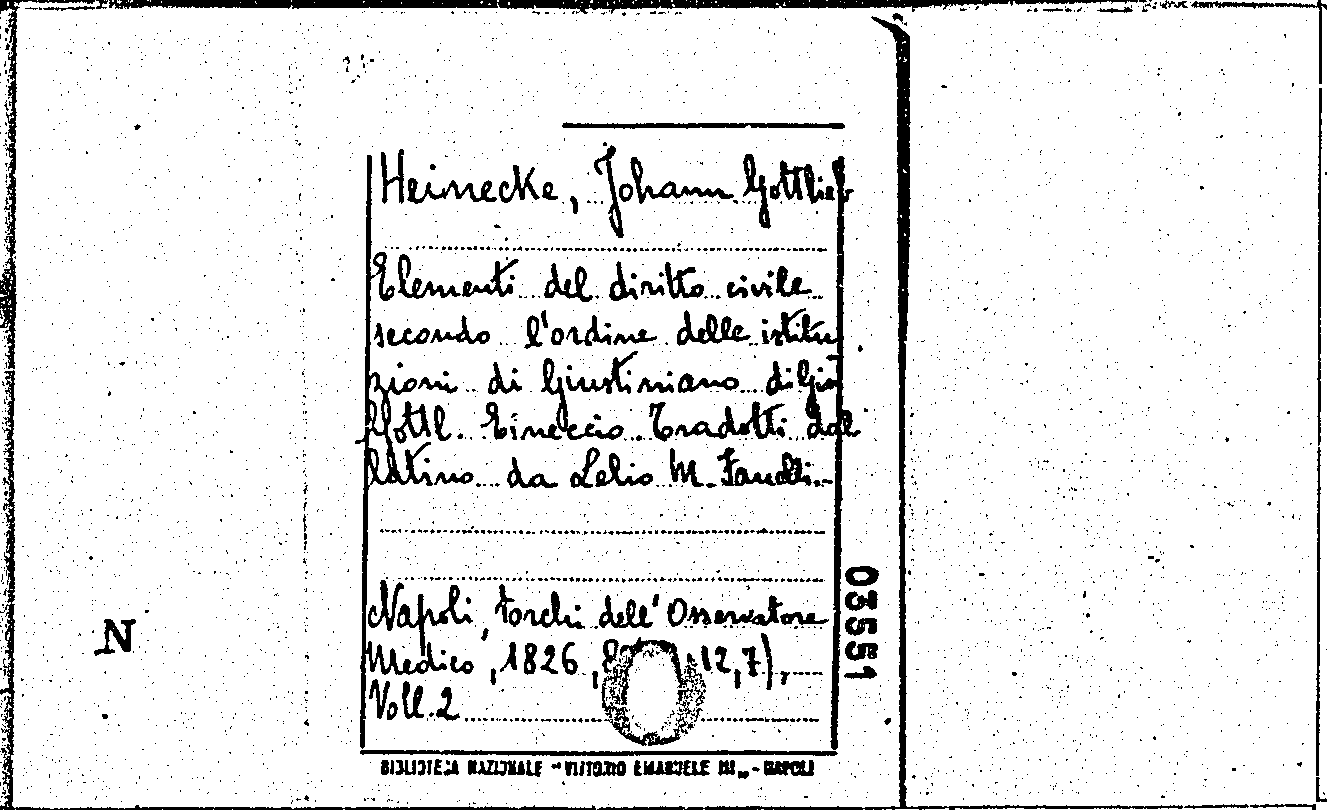 Heinecke, Johann Gottlieb
Elementi del diritto civile
secondo l'ordine delle istitu
zioni di Giustiniano di Gio
Gottl. Eineccio. Tradotti dal
latino da Lelio M. Fanelli.-
Napoli, torchi dell'Osservatore
Medico, 1826, 12,7),
Voll. 2
03551
N
BIBLIOTECA NAZIONALE "VITTORIO EMANUELE III" - NAPOLI